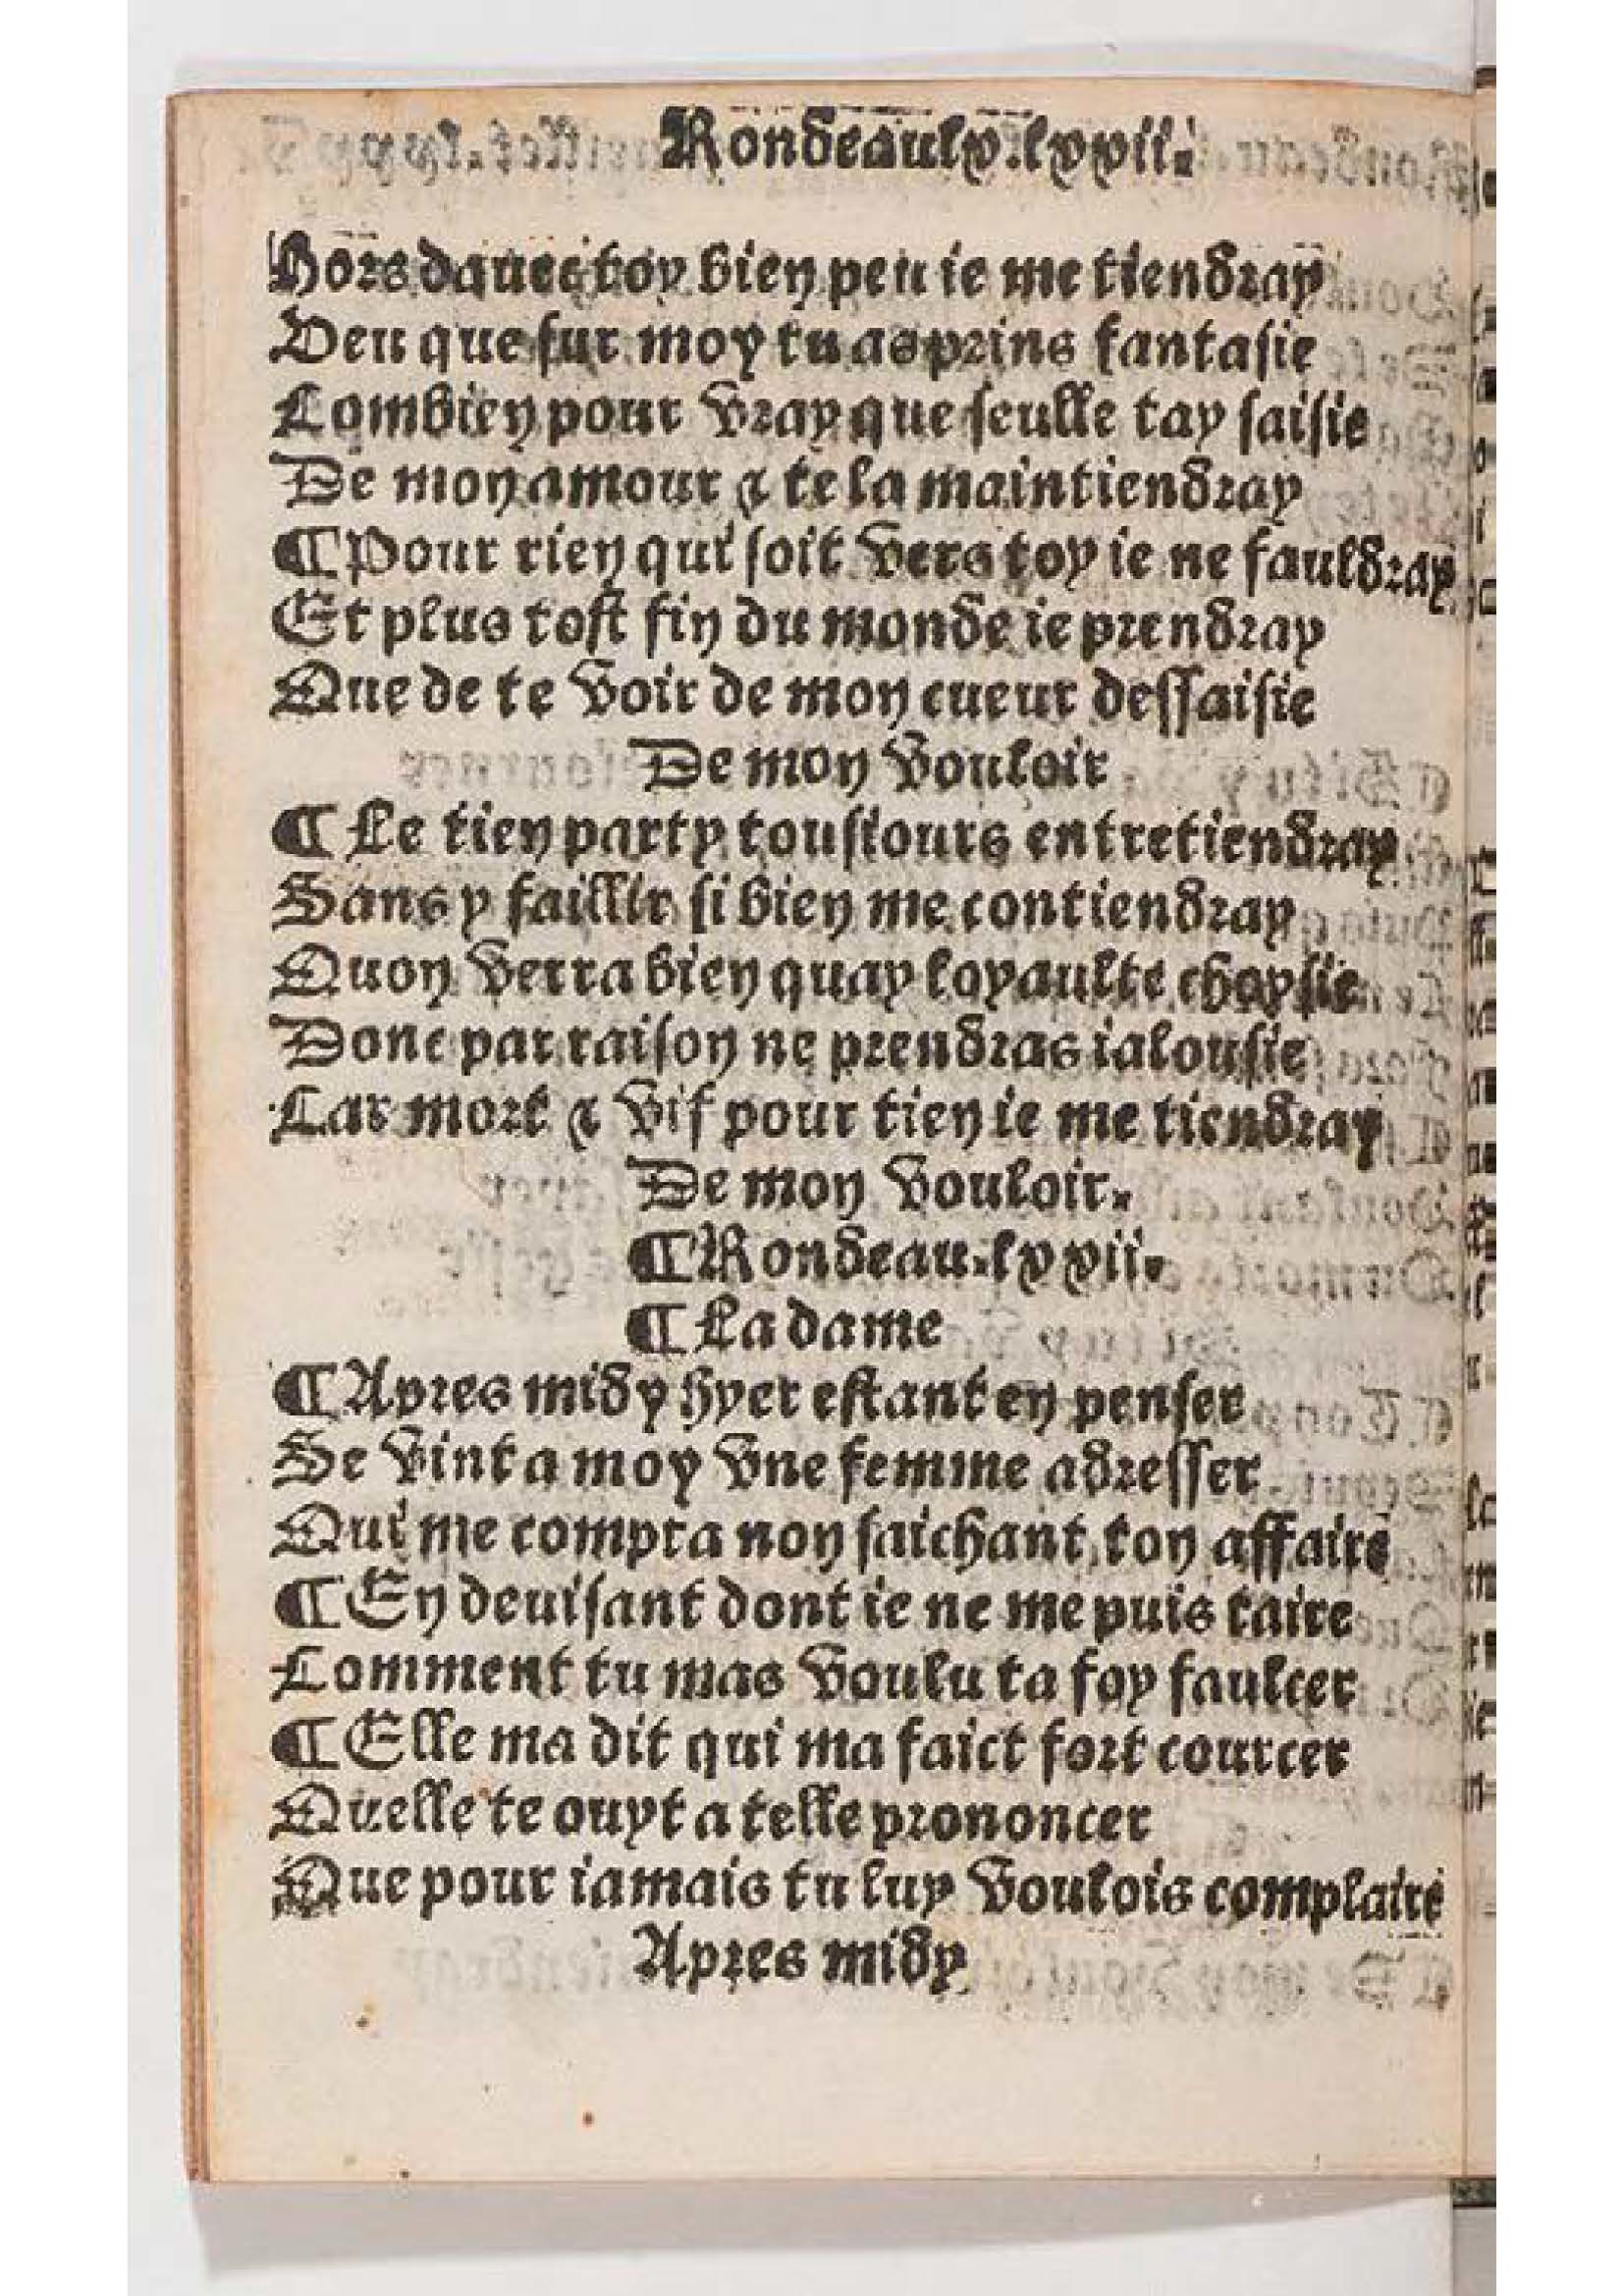 Rondeaulx.lxxii.
Hors dauec toy bien peu ie me tiendray
Veu que sur moy tu as prins fantasie
Combien pour vray que seulle tay saisie
De mon amour & te la maintiendray
¶Pour rien qui soit vers toy ie ne fauldray
Et plus tost fin du monde ie prendray
Que de te voir de mon cueur dessaisie
De mon vouloir
¶Le tien party tousiours entretiendray
Sans y faillir si bien me contiendray
Quon verra bien quay loyaulte choysie
Donc par raison ne prendras ialousie
Car mort & vif pour tien ie me tiendray
De mon vouloir.
¶Rondeau.lxxii.
¶La dame
¶Apres midy hyer estant en penser
Se vint a moy vne femme adresser
Qui me compta non saichant ton affaire
¶En deuisant dont ie ne me puis taire
Comment tu mas voulu ta foy faulcer
¶Elle ma dit qui ma faict fort courcer
Quelle te ouyt a telle prononcer
Que pour iamais tu luy voulois complaire
Apres midy